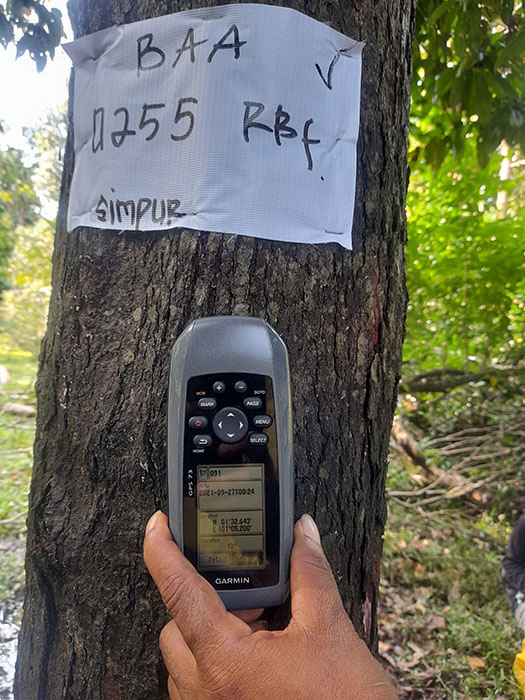 BAA
0255 RBf
simpur
MOB GOTO
MARK PAGE
MENU
SELECT
HOME
GPS 73
091
2021-09-27T08:24
N 01°32.643'
E 101°05.200'
GARMIN